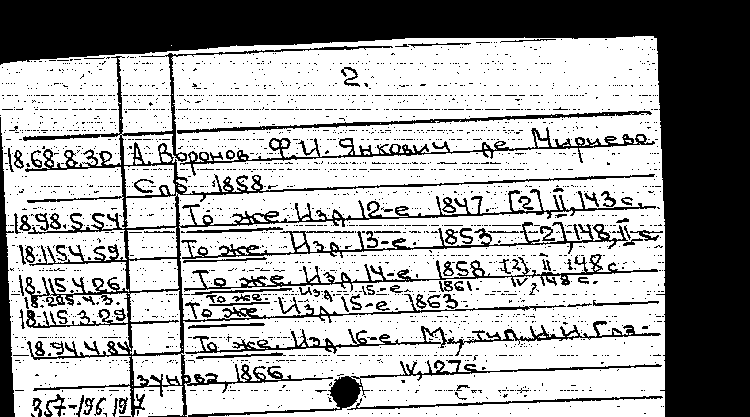 2.
18.68.8.32 А. Воронов. Ф.И. Янкович де Мириево
Спб., 1858.
18.98.5.54 То же. Изд. 12-е. 1847. [2], II, 143 с.
18.115.4.59 То же. Изд. 13-е. 1853. [2], 148, II с.
18.115.4.26 То же. Изд. 14-е. 1858. [2], II, 148 с.
18.205.4.3. То же. Изд. 15-е. 1861. IV, 148 с.
18.115.3.29 То же. Изд. 15-е. 1863.
18.94.4.84 То же. Изд. 16-е. М., тип. И.И. Глаз-
зунова, 1866. IV, 127 с.
357-196, 197 С